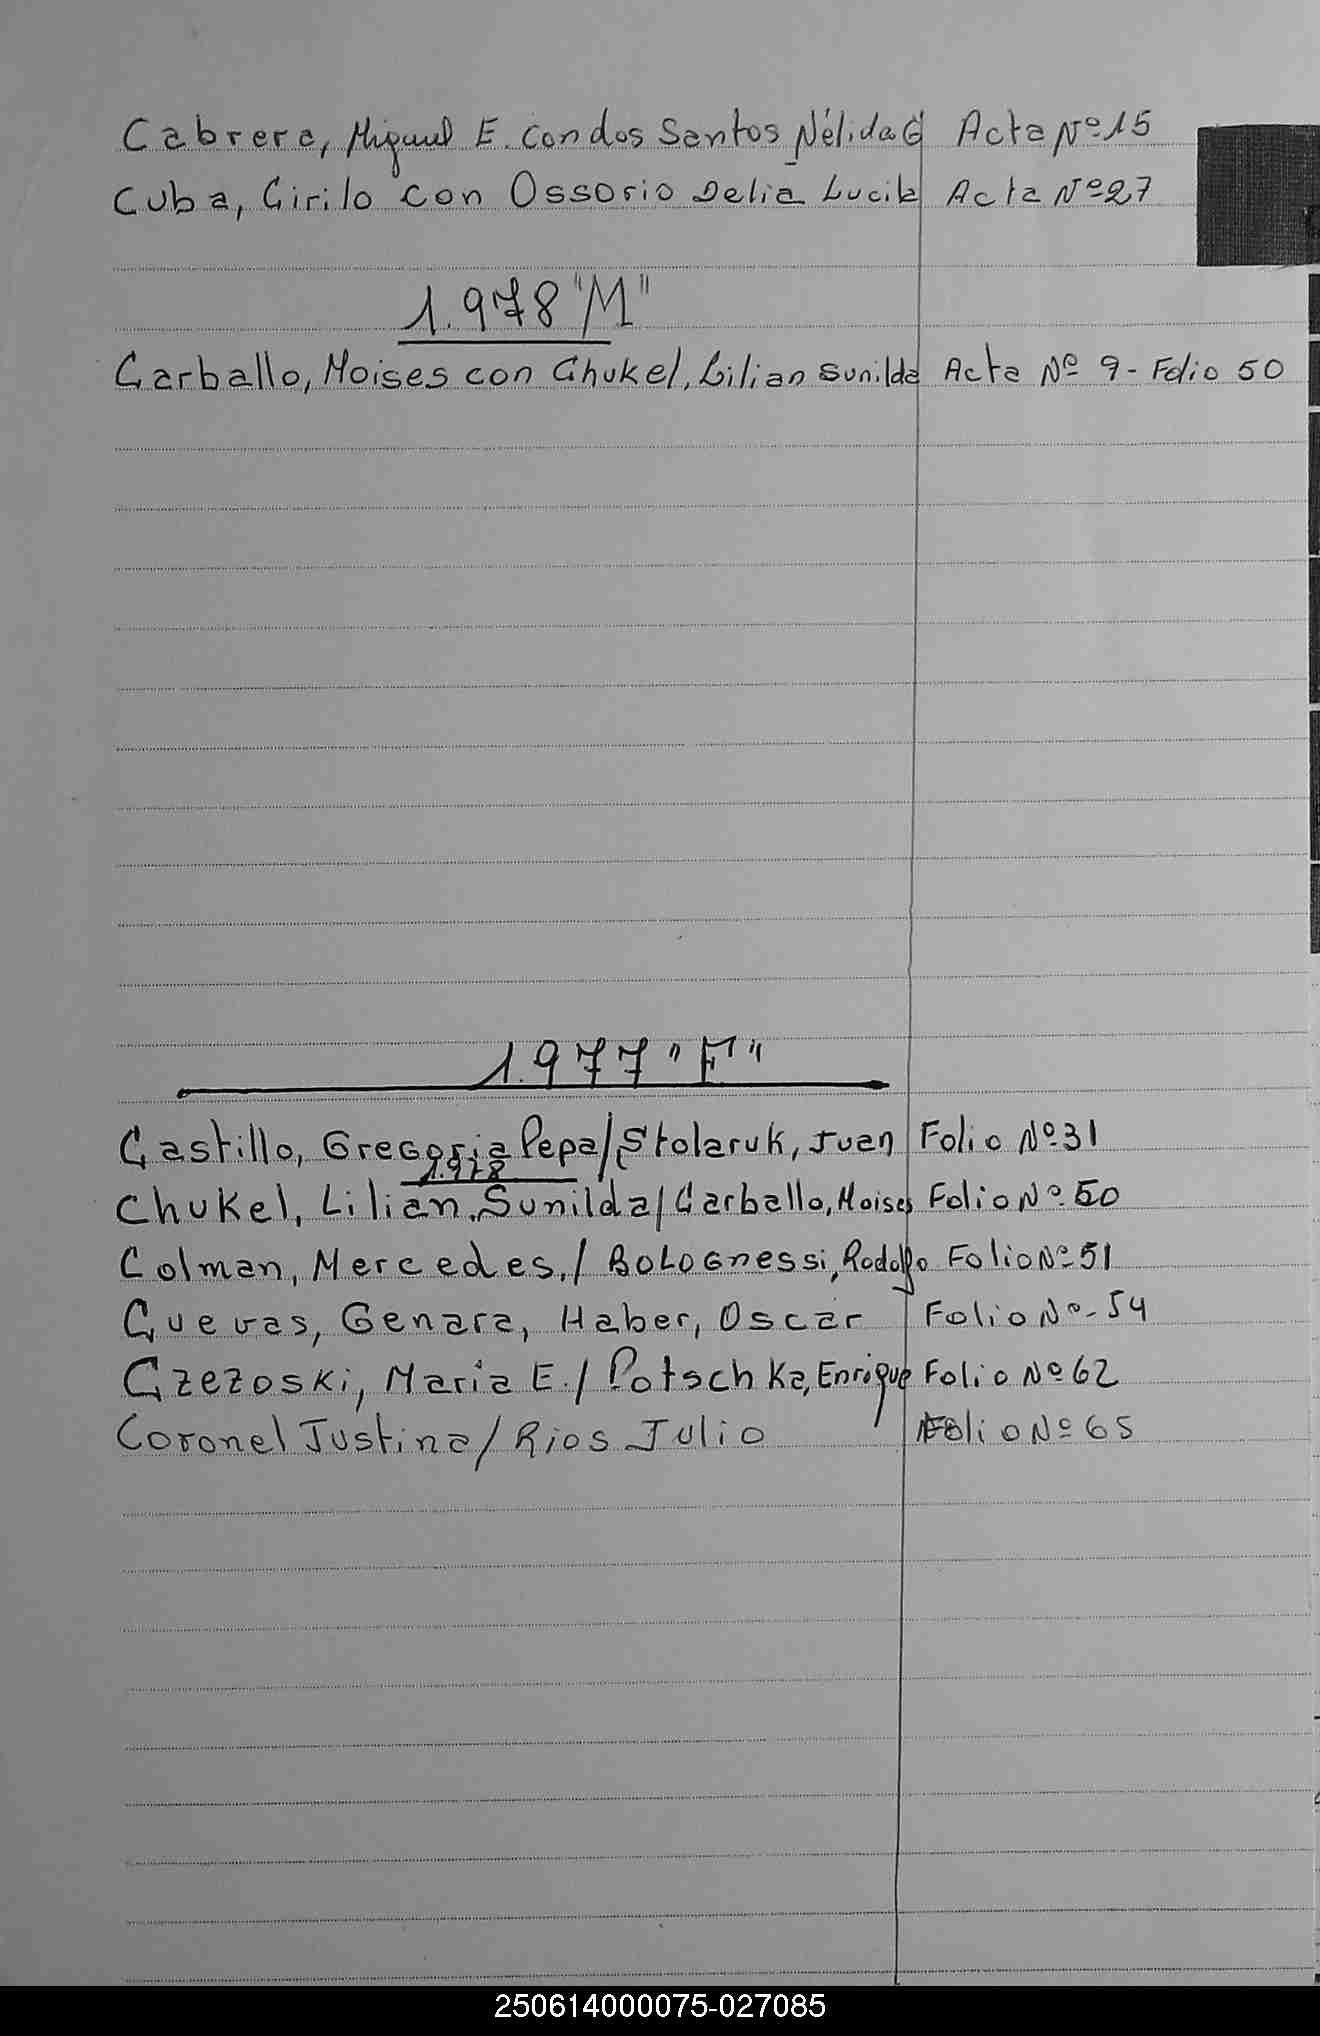 Cabrera, Miguel E. con dos Santos Nélida G Acta Nº 15
Cuba, Cirilo con Ossorio Delia Lucila Acta Nº 27
1.978 "M"
Carballo, Moises con Chukel, Lilian Sunilda Acta Nº 9 - Folio 50
1.977 "F"
Castillo, Gregoria Pepa / Stolaruk, Juan Folio Nº 31
1.978
Chukel, Lilian, Sunilda / Carballo, Moises Folio Nº 50
Colman, Mercedes, / Bolognessi, Rodolfo Folio Nº 51
Cuevas, Genara, Haber, Oscar Folio Nº 54
Czezoski, Maria E. / Potschka, Enrique Folio Nº 62
Coronel Justina / Rios Julio Folio Nº 65
250614000075-027085